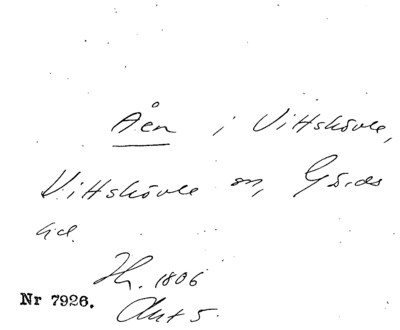 Åen i Vittskövle,
Vittskövle sn, Gärds
hd.
Hr. 1806
Nr 7926. Akt 5.